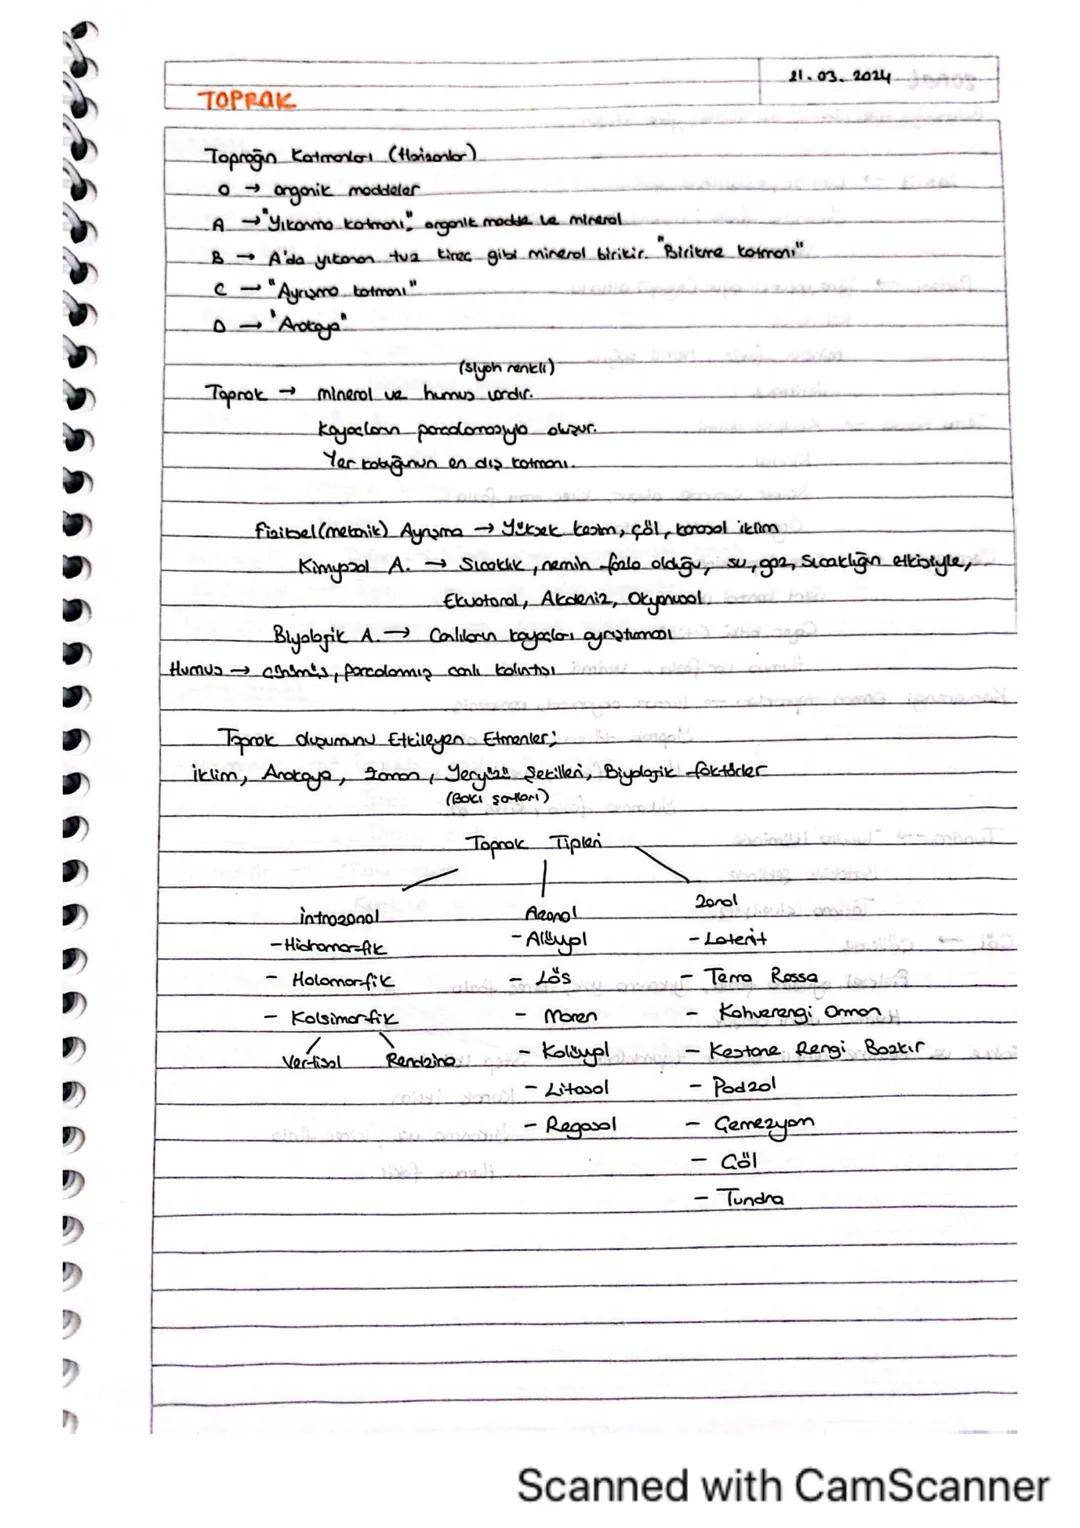 21.03.2024
TOPRAK
Toprağın Katmanları (Horizonlar)
O → organik maddeler
A → "Yıkanma katmanı" organik madde ve mineral
B → A'da yıkanan tuz kireç gibi mineral birikir. "Biriktirme katmanı"
C → "Ayrışma katmanı"
D → "Anakaya"
(siyah renkli)
Toprak → mineral ve humus vardır.
Kayaçların parçalanmasıyla oluşur.
Yer kabuğunun en dış katmanı.
Fiziksel (mekanik) Ayrışma → Yüksek kesim, çöl, karasal iklim
Kimyasal A. → Sıcaklık, nemin fazla olduğu, su, gaz, sıcaklığın etkisiyle,
Ekvatoral, Akdeniz, Okyanusal
Biyolojik A. → Canlıların kayaçları ayrıştırması
Humus → çürümüş, parçalanmış canlı kalıntısı
Toprak oluşumunu Etkileyen Etmenler;
iklim, Anakaya, zaman, Yeryüzü Şekilleri, Biyolojik faktörler
(Bakı şartları)
Toprak Tipleri
intrazonal Azonal Zonal
- Hidromorfik - Alüvyal - Laterit
- Halomorfik - Lös - Terra Rossa
- Kalsimorfik - Moren - Kahverengi Orman
Vertisol Rendzina - Kolüvyal - Kestane Rengi Bozkır
- Litosol - Podzol
- Regosol - Çernezyom
- Çöl
- Tundra
Scanned with CamScanner